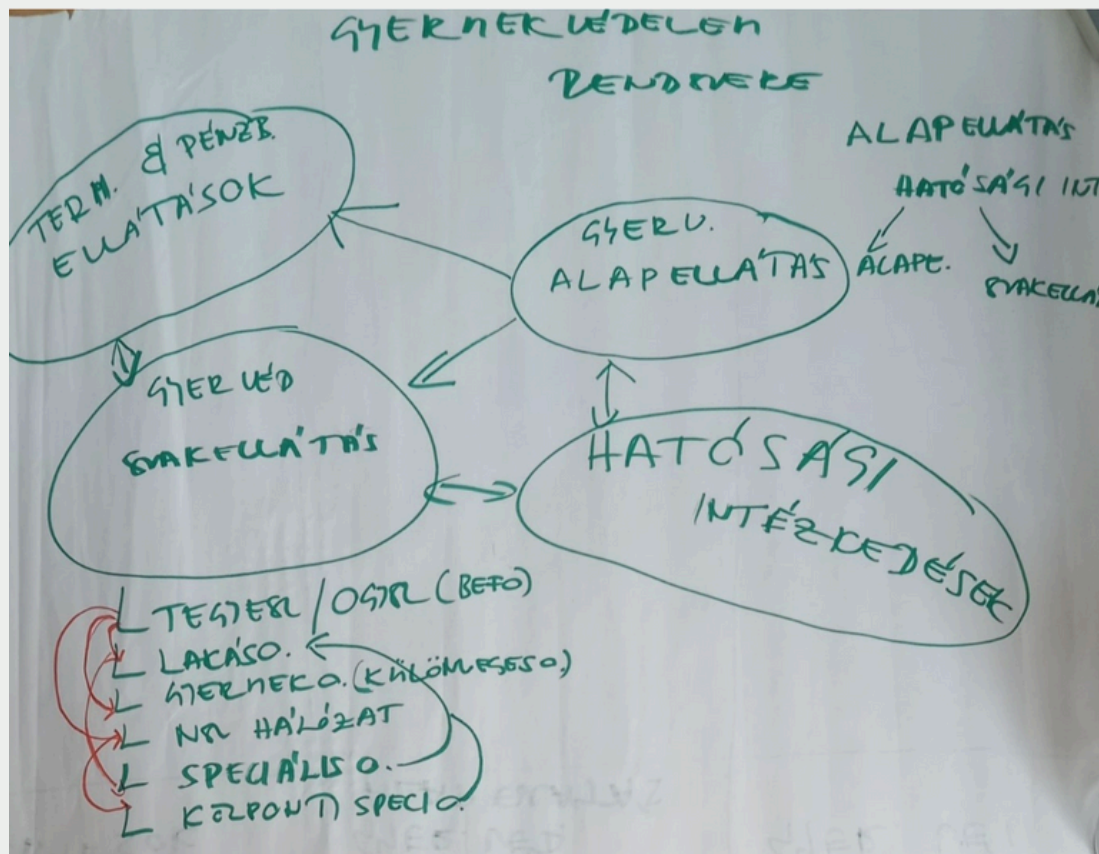 GYERMEKVÉDELEM
RENDSZERE
TERM. & PÉNZB.
ELLÁTÁSOK
GYERV.
ALAPELLÁTÁS
ALAPELLÁTÁS
HATÓSÁGI INT
ALAPE.
SZAKELLÁ
GYERVÉD
SZAKELLÁTÁS
HATÓSÁGI
INTÉZKEDÉSEK
TEGYESZ / OGYSZ (BEFO)
LAKÁSO.
GYERMEKO. (KÜLÖNLEGESO.)
NSZ HÁLÓZAT
SPECIÁLIS O.
KÖZPONTI SPECI O.